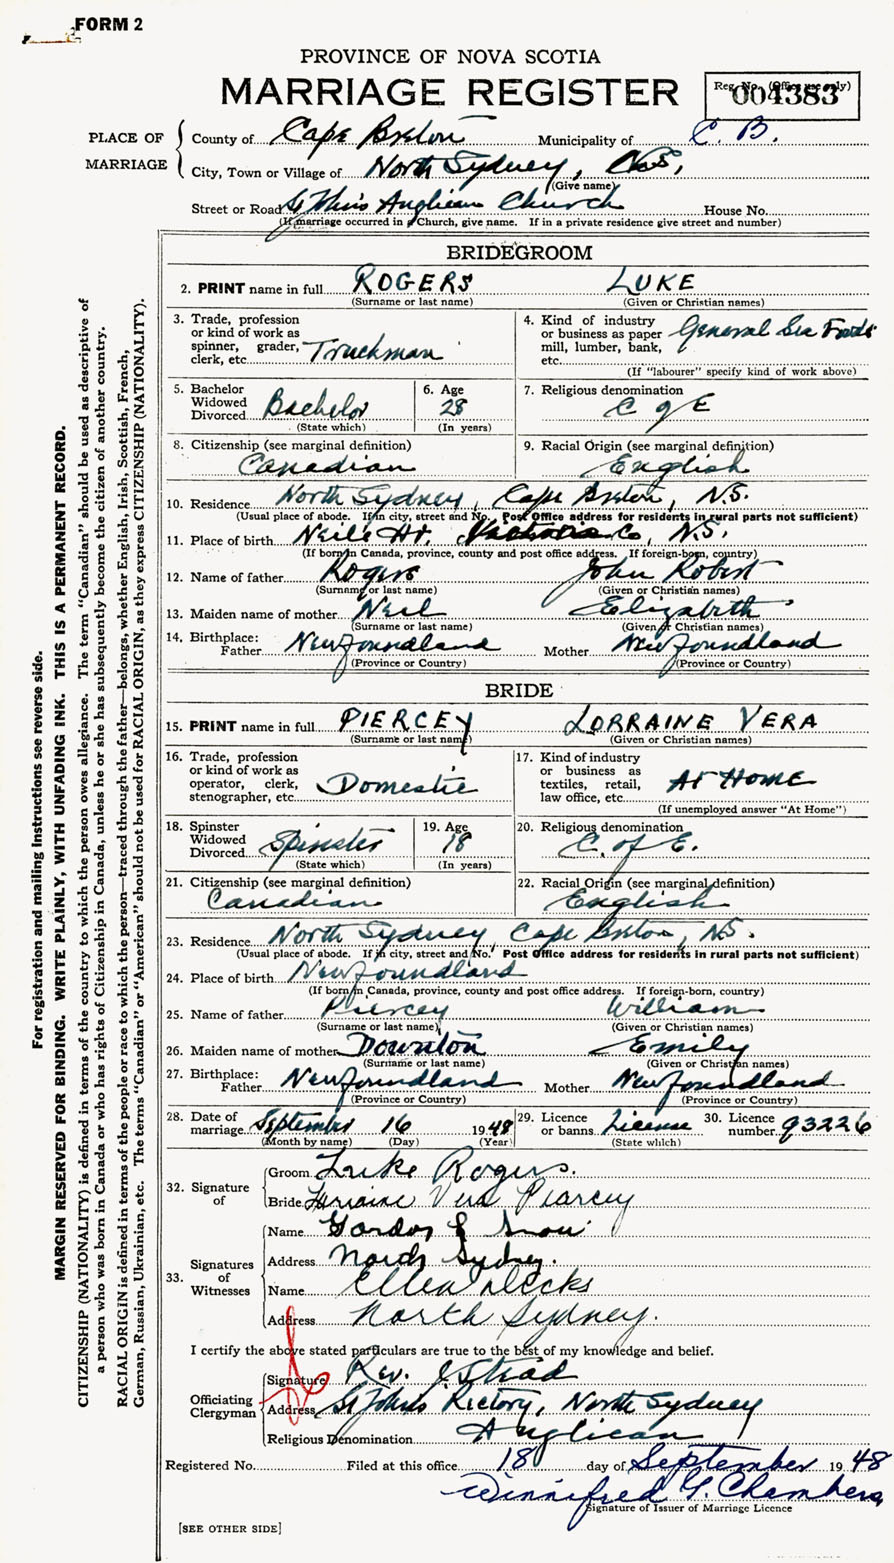 FORM 2
PROVINCE OF NOVA SCOTIA
MARRIAGE REGISTER
Reg. No. (Office use only)
004383
PLACE OF MARRIAGE
County of Cape Breton Municipality of C. B.
City, Town or Village of North Sydney, N.S,
(Give name)
Street or Road St John's Anglican Church House No.
(If marriage occurred in a Church, give name. If in a private residence give street and number)
BRIDEGROOM
2. PRINT name in full ROGERS LUKE
(Surname or last name) (Given or Christian names)
3. Trade, profession or kind of work as spinner, grader, clerk, etc. Truckman
4. Kind of industry or business as paper mill, lumber, bank, etc. General Sea Foods
(If "labourer" specify kind of work above)
5. Bachelor Widowed Divorced Bachelor
(State which)
6. Age 28
(In years)
7. Religious denomination C of E
8. Citizenship (see marginal definition) Canadian
9. Racial Origin (see marginal definition) English
10. Residence North Sydney, Cape Breton, N.S.
(Usual place of abode. If in city, street and No. Post Office address for residents in rural parts not sufficient)
11. Place of birth Neils Hr. Victoria Co, N.S.
(If born in Canada, province, county and post office address. If foreign-born, country)
12. Name of father Rogers John Robert
(Surname or last name) (Given or Christian names)
13. Maiden name of mother Neil Elizabeth
(Surname or last name) (Given or Christian names)
14. Birthplace: Father Newfoundland Mother Newfoundland
(Province or Country) (Province or Country)
BRIDE
15. PRINT name in full PIERCEY LORRAINE VERA
(Surname or last name) (Given or Christian names)
16. Trade, profession or kind of work as operator, clerk, stenographer, etc. Domestic
17. Kind of industry or business as textiles, retail, law office, etc. At HOME
(If unemployed answer "At Home")
18. Spinster Widowed Divorced Spinster
(State which)
19. Age 18
(In years)
20. Religious denomination C. of E.
21. Citizenship (see marginal definition) Canadian
22. Racial Origin (see marginal definition) English
23. Residence North Sydney, Cape Breton, N.S.
(Usual place of abode. If in city, street and No. Post Office address for residents in rural parts not sufficient)
24. Place of birth Newfoundland
(If born in Canada, province, county and post office address. If foreign-born, country)
25. Name of father Piercey William
(Surname or last name) (Given or Christian names)
26. Maiden name of mother Downton Emily
(Surname or last name) (Given or Christian names)
27. Birthplace: Father Newfoundland Mother Newfoundland
(Province or Country) (Province or Country)
28. Date of marriage September 16 1948
(Month by name) (Day) (Year)
29. Licence or banns License
(State which)
30. Licence number 93226
32. Signature of
Groom Luke Rogers.
Bride Lorraine Vera Piercey
33. Signatures of Witnesses
Name Gordon Snow
Address North Sydney.
Name Ellen
Address North Sydney.
I certify the above stated particulars are true to the best of my knowledge and belief.
Officiating Clergyman
Signature Rev. J Stead
Address St John's Rectory, North Sydney
Religious Denomination Anglican
Registered No. Filed at this office 18 day of September 1948
Winnifred G. Chambers
Signature of Issuer of Marriage Licence
[SEE OTHER SIDE]
For registration and mailing instructions see reverse side.
MARGIN RESERVED FOR BINDING. WRITE PLAINLY, WITH UNFADING INK. THIS IS A PERMANENT RECORD.
CITIZENSHIP (NATIONALITY) is defined in terms of the country to which the person owes allegiance. The term "Canadian" should be used as descriptive of
a person who was born in Canada or who has rights of Citizenship in Canada, unless he or she has subsequently become the citizen of another country.
RACIAL ORIGIN is defined in terms of the people or race to which the person—traced through the father—belongs, whether English, Irish, Scottish, French,
German, Russian, Ukrainian, etc. The terms "Canadian" or "American" should not be used for RACIAL ORIGIN, as they express CITIZENSHIP (NATIONALITY).